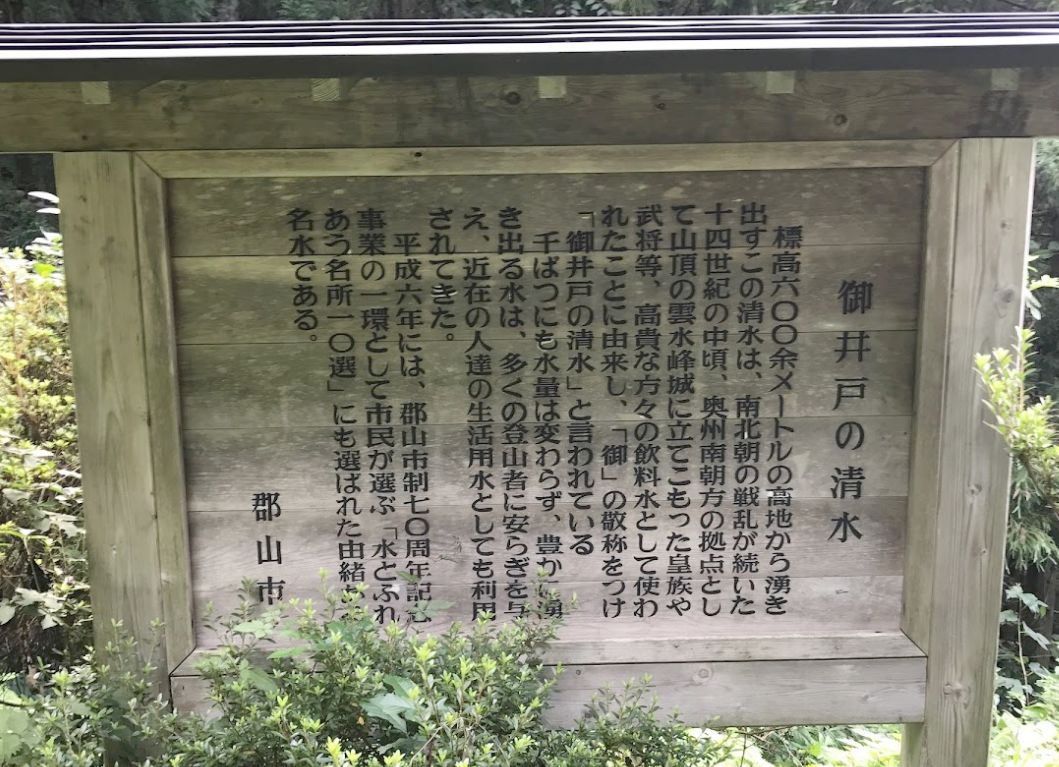 御井戸の清水
標高六〇〇余メートルの高地から湧き
出すこの清水は、南北朝の戦乱が続いた
十四世紀の中頃、奥州南朝方の拠点とし
て山頂の雲水峰城に立てこもった皇族や
武将等、高貴な方々の飲料水として使わ
れたことに由来し、「御」の敬称をつけ
「御井戸の清水」と言われている
千ばつにも水量は変わらず、豊かに湧
き出る水は、多くの登山者に安らぎを与
え、近在の人達の生活用水としても利用
されてきた。
平成六年には、郡山市制七〇周年記念
事業の一環として市民が選ぶ「水とふれ
あう名所一〇選」にも選ばれた由緒
名水である。
郡山市